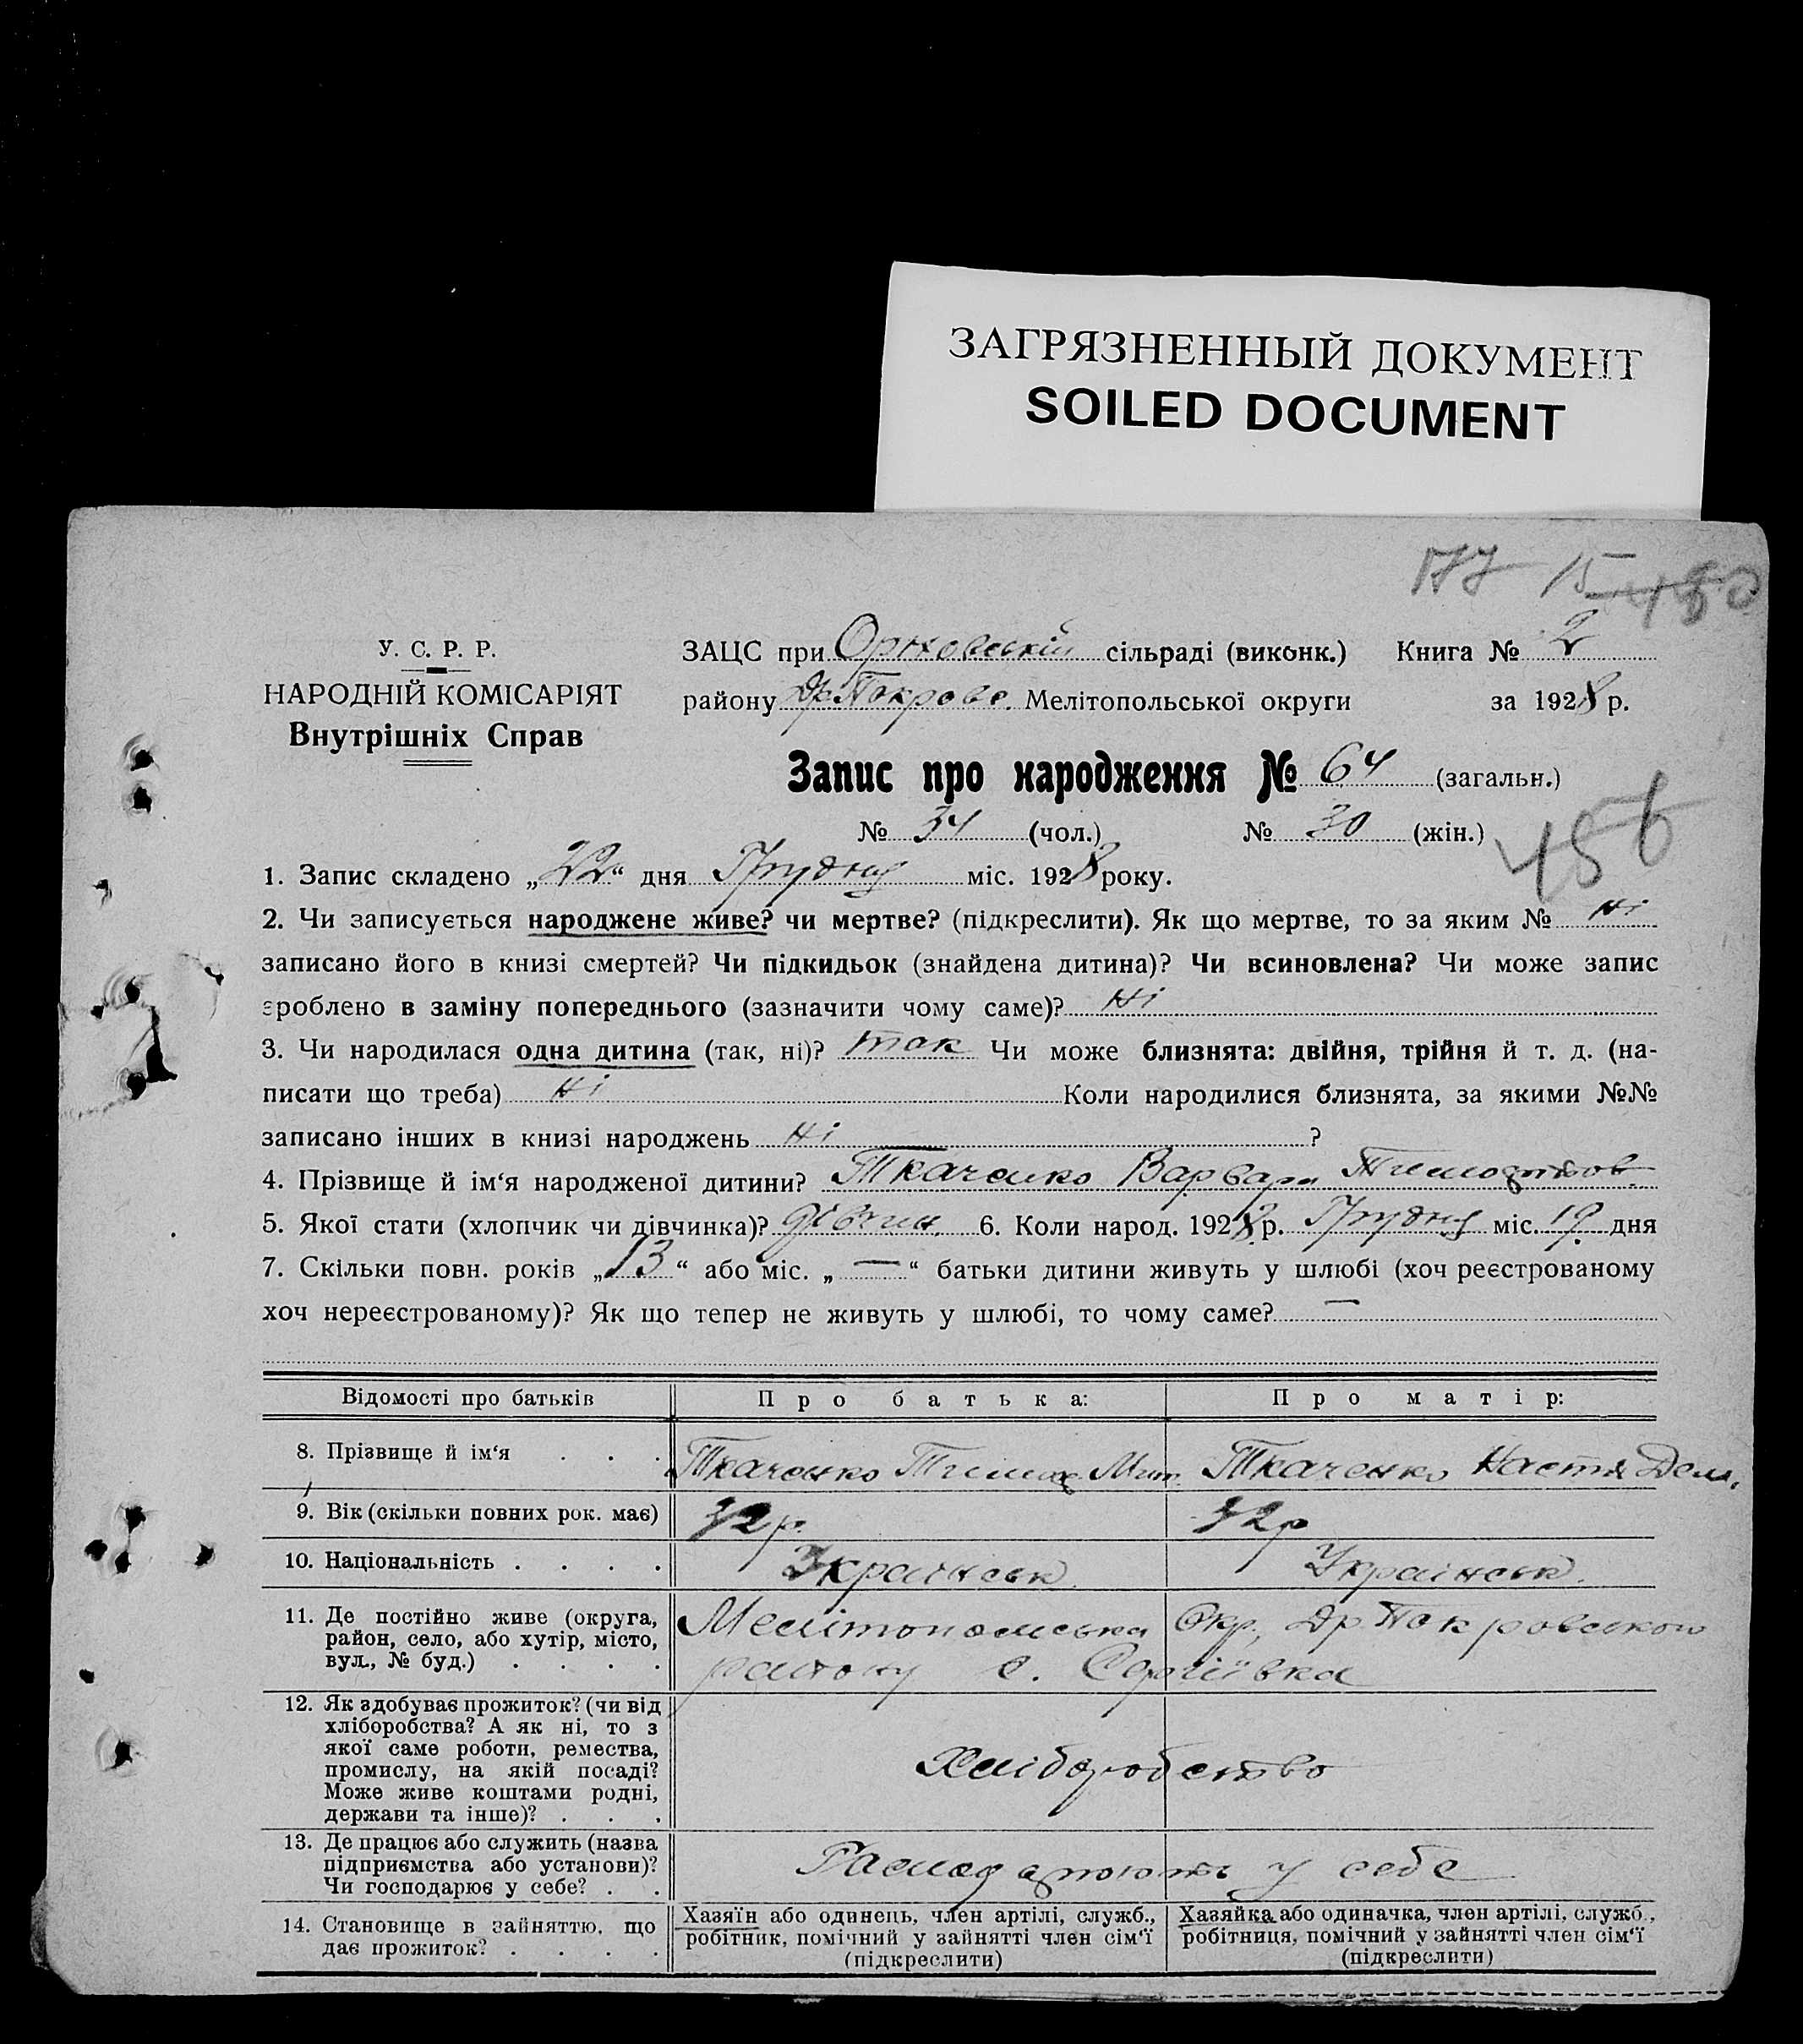 ЗАГРЯЗНЕННЫЙ ДОКУМЕНТ
SOILED DOCUMENT
177 15 480
У. С. Р. Р.
НАРОДНІЙ КОМІСАРІЯТ
Внутрішніх Справ
ЗАЦС при сільраді (виконк.) Книга № 2
району Др. Покровс. Мелітопольської округи за 1928 р.
Запис про народження № 64 (загальн.)
№ 34 (чол.) № 30 (жін.)
456
1. Запис складено „22“ дня Грудня міс. 1928 року.
2. Чи записується народжене живе? чи мертве? (підкреслити). Як що мертве, то за яким № ні
записано його в книзі смертей? Чи підкидьок (знайдена дитина)? Чи всиновлена? Чи може запис
зроблено в заміну попереднього (зазначити чому саме)? ні
3. Чи народилася одна дитина (так, ні)? так Чи може близнята: двійня, трійня й т. д. (на-
писати що треба) ні Коли народилися близнята, за якими №№
записано інших в книзі народжень ні ?
4. Прізвище й ім‘я народженої дитини? Ткаченко Варвара Тимофіїов.
5. Якої стати (хлопчик чи дівчинка)? дівчин. 6. Коли народ. 1928 р. Грудня міс. 19 дня
7. Скільки повн. років „13“ або міс. „—“ батьки дитини живуть у шлюбі (хоч реєстрованому
хоч нереєстрованому)? Як що тепер не живуть у шлюбі, то чому саме? —
Відомості про батьків Про батька: Про матір:
8. Прізвище й ім‘я . . . Ткаченко Тимоф. Мит. Ткаченко Настя Дем.
9. Вік (скільки повних рок. має) 32 р. 32 р
10. Національність . . . . Українськ. Українськ.
11. Де постійно живе (округа, район, село, або хутір, місто, вул., № буд.) . . . . Мелітопольська Окр., Др. Покровського
району с. Сергіївка
12. Як здобуває прожиток? (чи від
хліборобства? А як ні, то з
якої саме роботи, ремества,
промислу, на якій посаді?
Може живе коштами родні,
держави та інше)? . . .
Хліборобство
13. Де працює або служить (назва
підприємства або установи)?
Чи господарює у себе? . .
Гаспадарюють у себе
14. Становище в зайняттю, що
дає прожиток? . . . .
Хазяїн або одинець, член артілі, служб.,
робітник, помічний у зайнятті член сім‘ї
(підкреслити)
Хазяйка або одиначка, член артілі, служб.,
робітниця, помічний у зайнятті член сім‘ї
(підкреслити)